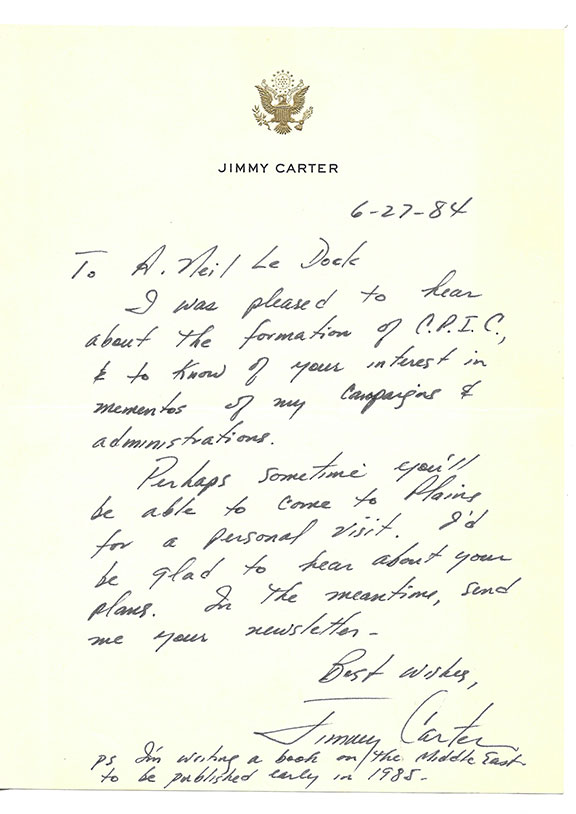 JIMMY CARTER
6-27-84
To A. Neil Le Dock
I was pleased to hear
about the formation of C.P.I.C.,
& to know of your interest in
mementos of my campaigns &
administrations.
Perhaps sometime you'll
be able to come to Plains
for a personal visit. I'd
be glad to hear about your
plans. In the meantime, send
me your newsletter -
Best wishes,
Jimmy Carter
ps I'm writing a book on the Middle East
to be published early in 1985 -